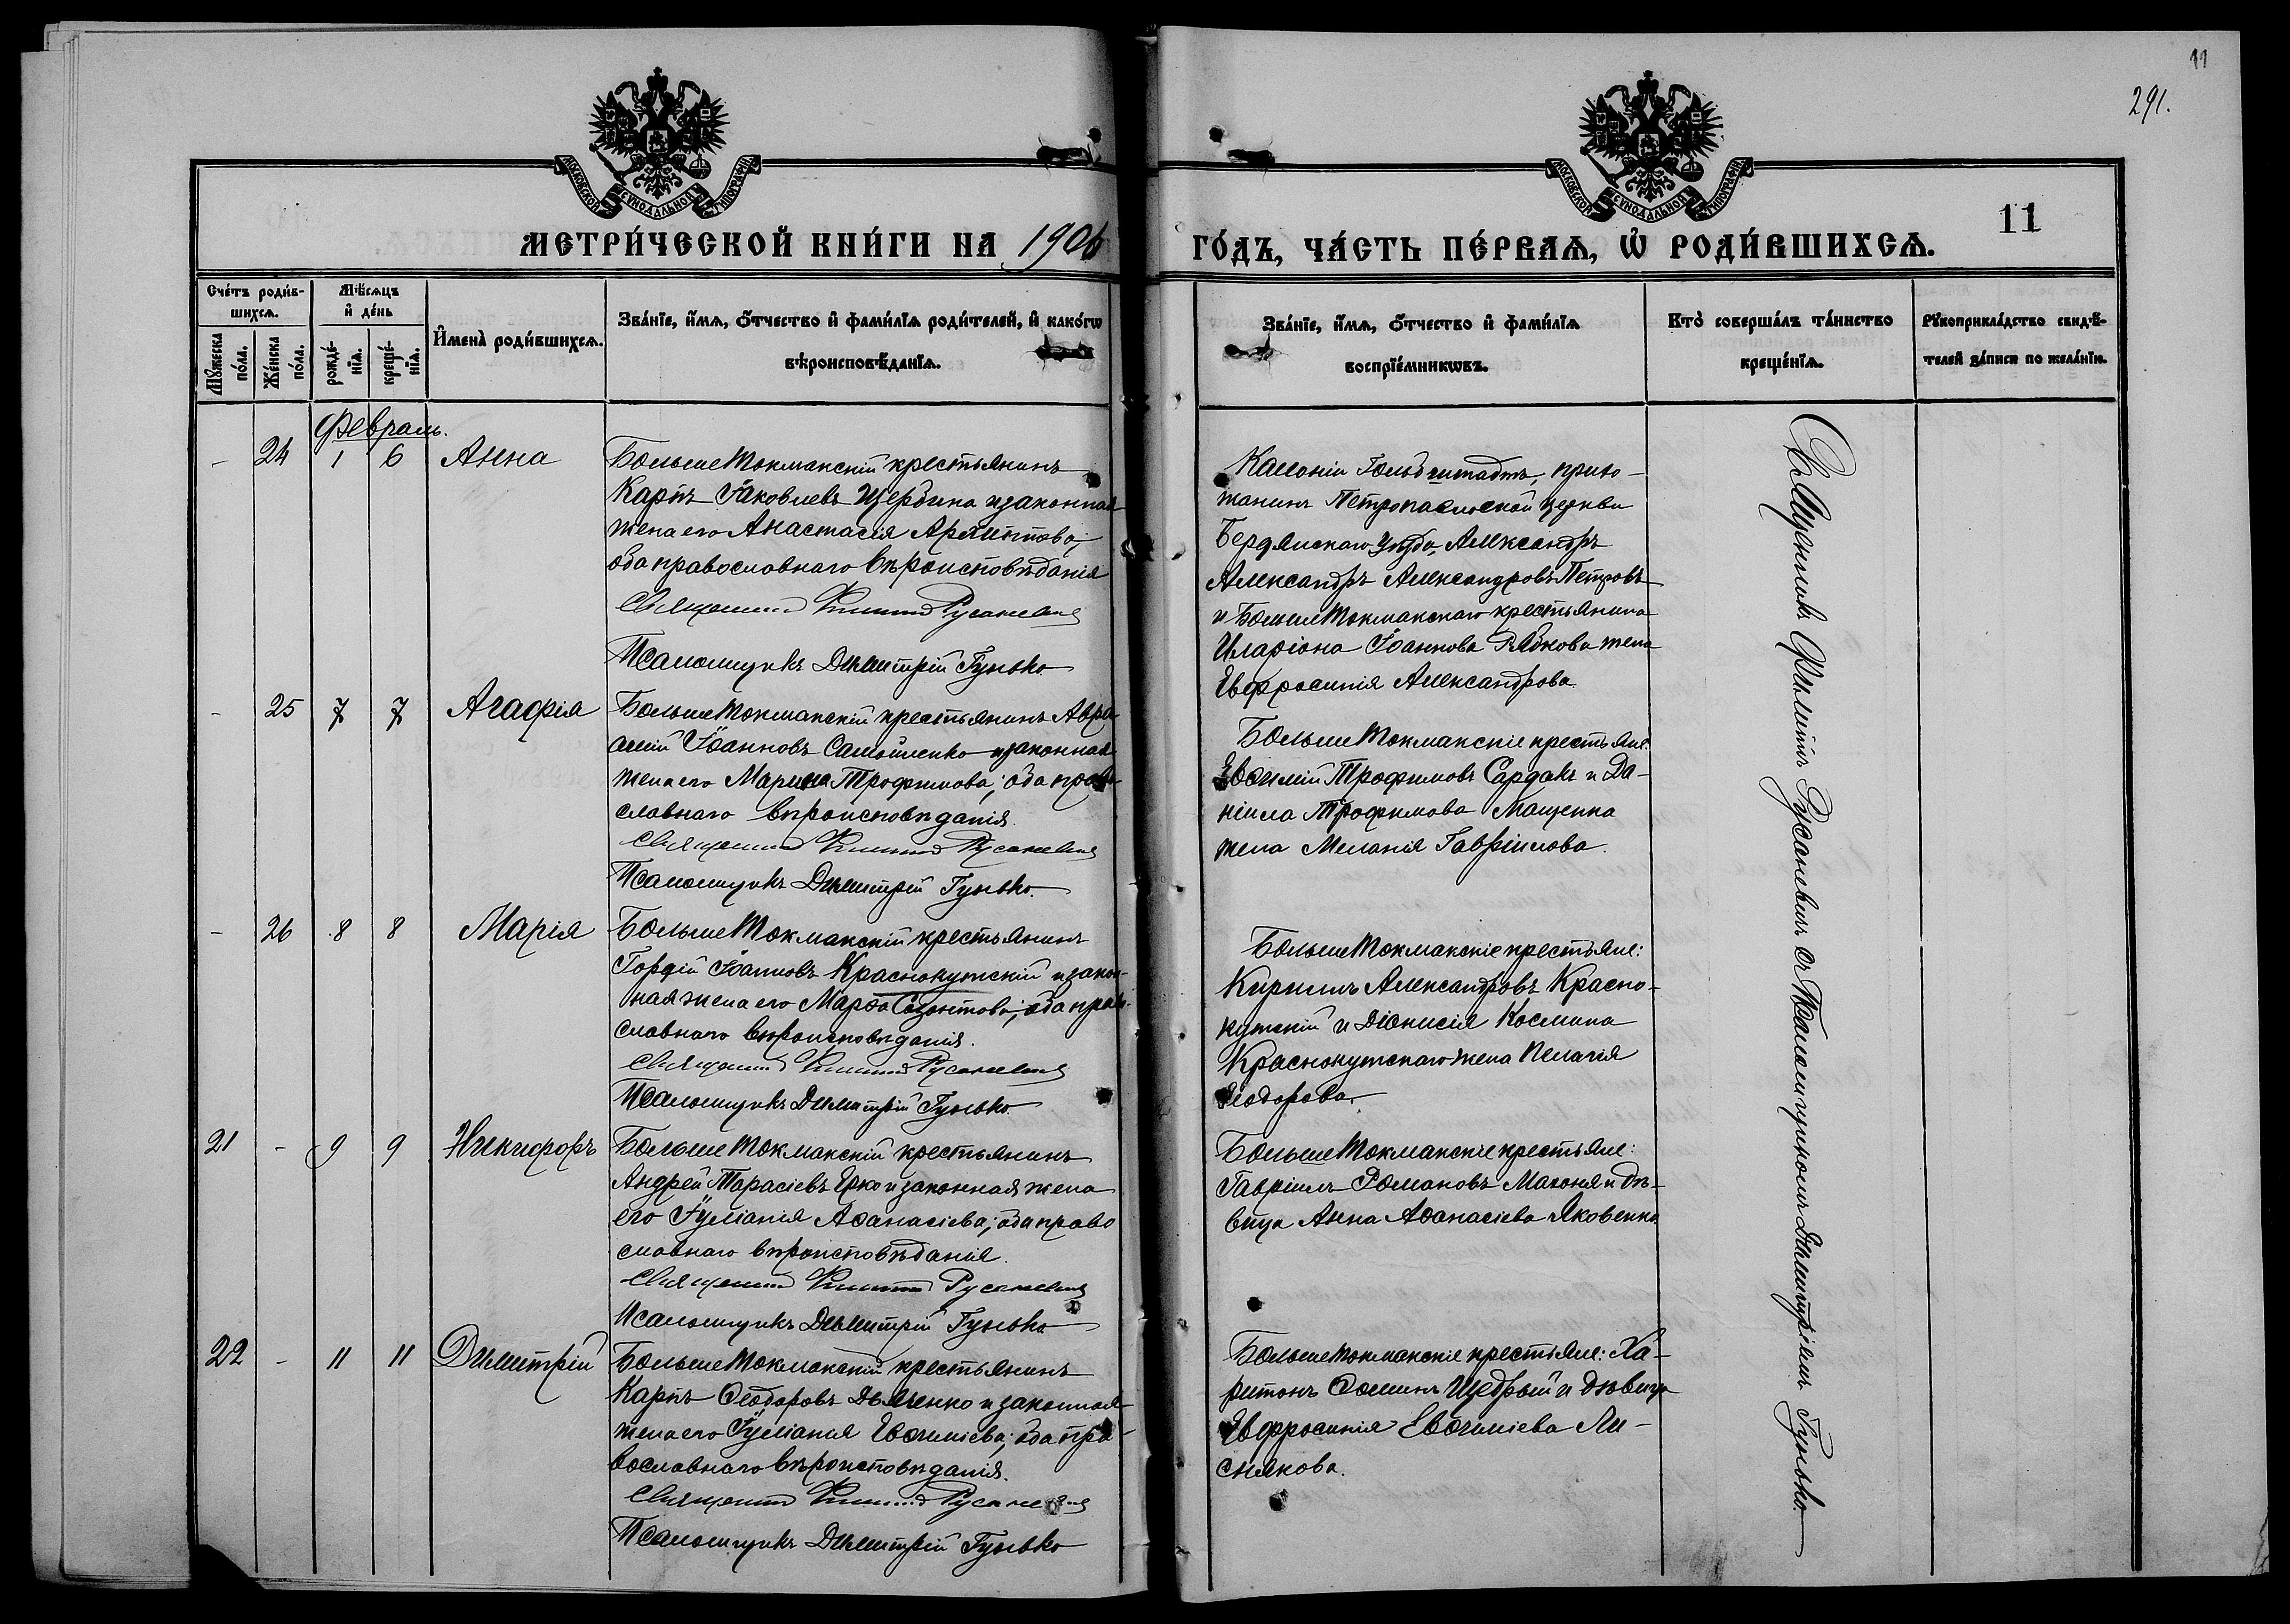 11
291.
МОСКОВСКОЙ СѴНОДАЛЬНОЙ ТИПОГРАФІИ
МОСКОВСКОЙ СѴНОДАЛЬНОЙ ТИПОГРАФІИ
МЕТРИ́ЧЕСКОЙ КНИ́ГИ НА 1906
ГО́ДЪ, ЧА́СТЬ ПЕ́РВАѦ, Ѡ҆ РОДИ́ВШИХСѦ.
11
Сче́тъ роди́в-
шихсѧ.
Мꙋ́жеска
по́ла.
Же́нска
по́ла.
Мѣ́сѧцъ
и҆ де́нь
рожде́-
нїѧ.
креще́-
нїѧ.
И҆мена̀ роди́вшихсѧ.
Зва́нїе, и҆́мѧ, ѻ҆́тчество и҆ фами́лїѧ роди́телей, и҆ како́гѡ
вѣроисповѣ́данїѧ.
Зва́нїе, и҆́мѧ, ѻ҆́тчество и҆ фами́лїѧ
воспрїе́мникѡвъ.
Кто̀ соверша́лъ та́инство
креще́нїѧ.
Рꙋкоприкла́дство свидѣ́-
телей за́писи по жела́нїю.
Февраль.
- 24 1 6 Анна
БольшеТокмакскій крестьянинъ
Карпъ Іаковлевъ Щербина и законная
жена его Анастасія
оба православнаго вѣроисповѣданія
Священникъ Филиппъ Русаневичъ
Псаломщикъ Димитрій Гунько
Колоніи Гольбштадтъ, прихо-
жанинъ Петропавловской церкви
Бердянскаго уѣзда, Александръ
Александръ Александровъ Петровъ
и БольшеТокмакскаго крестьянина
Иларіона Іоаннова Рябкова жена
Евфросинія Александрова.
- 25 7 7 Агафія
БольшеТокмакскій крестьянинъ Авра-
амій Іоанновъ Самойленко и законная
жена его Марина Трофимова; оба право-
славнаго вѣроисповѣданія.
Священникъ Филиппъ Русаневичъ
Псаломщикъ Димитрій Гунько.
БольшеТокмакскіе крестьяне:
Евѳимій Трофимовъ Сардакъ и Да-
ніила Трофимова Мащенка
жена Меланія Гавріилова.
- 26 8 8 Марія
БольшеТокмакскій крестьянинъ
Гордій Іоанновъ Краснокутскій и закон-
ная жена его Марѳа Созонтова; оба право-
славнаго вѣроисповѣданія.
Священникъ Филиппъ Русаневичъ
Псаломщикъ Димитрій Гунько.
БольшеТокмакскіе крестьяне:
Кириллъ Александровъ Красно-
кутскій и Діонисія Космина
Краснокутскаго жена Пелагія
Ѳеодорова.
21 - 9 9 Никифоръ
БольшеТокмакскій крестьянинъ
Андрей Тарасіевъ Ерко и законная жена
его Іуліанія Аѳанасіева; оба право
славнаго вѣроисповѣданія.
Священникъ Филиппъ Русаневичъ
Псаломщикъ Димитрій Гунько
БольшеТокмакскіе крестьяне:
Гавріилъ Романовъ Махоня и дѣ-
вица Анна Аѳанасіева Яковенко
22 - 11 11 Димитрій
БольшеТокмакскій крестьянинъ
Карпъ Ѳеодоровъ Дьяченко и законная
жена его Іуліанія Евѳиміева; оба пра-
вославнаго вѣроисповѣданія.
Священникъ Филиппъ Русаневичъ
Псаломщикъ Димитрій Гунько
БольшеТокмакскіе крестьяне: Ха-
ритонъ Ѳоминъ Щедрый и дѣвица
Евфросинія Евѳиміева Ли-
снякова.
Священникъ Филиппъ Русаневичъ съ Псаломщикомъ Димитріемъ Гунько.